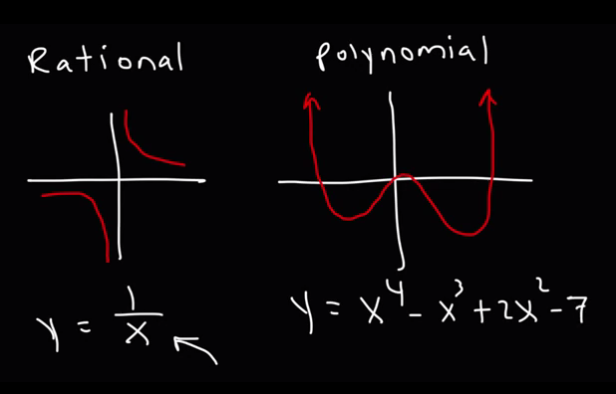 Rational
Polynomial
y = 1/x
y = x⁴ - x³ + 2x² - 7